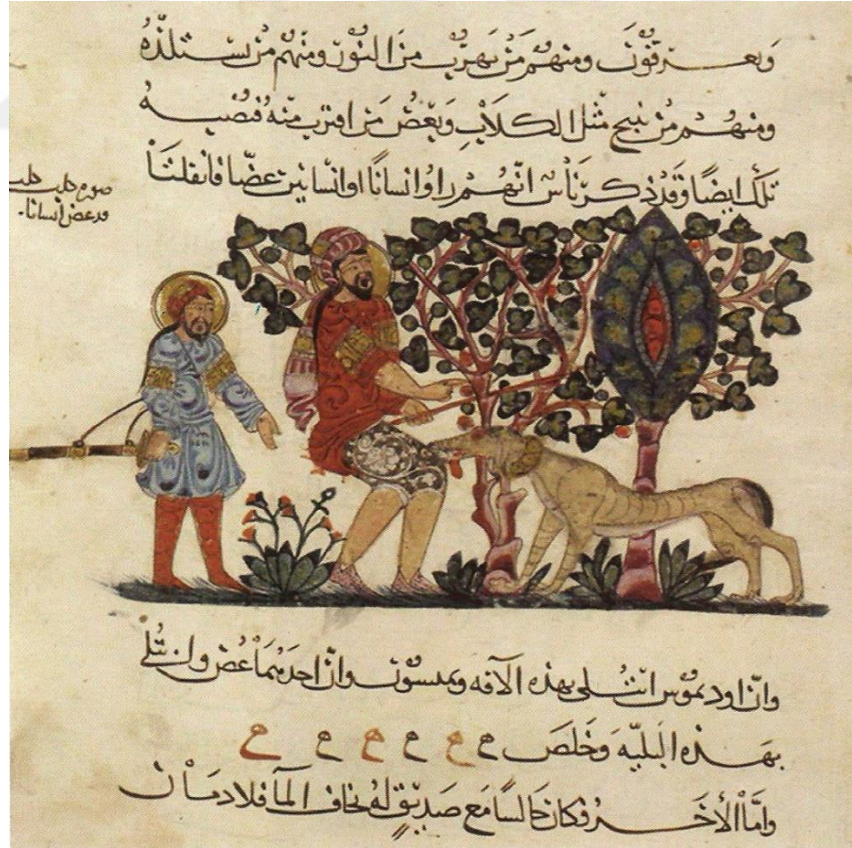 ويعرقون ومنهم من يهرب من النور ومنهم من يستلذه
ومنهم من ينبح مثل الكلاب وبعض من اقترب منه
تلك ايضًا وقد ذكر ناس انهم راوا انسانًا او انسانين عضّا فانفلتا
صورة كلب كلب
قد عض انسانا
وان اوديموس ابتلى بهذه الآفه وان احدهما عض وابتلى
بهذه البليّه وخلص ه ه ه ه ه ه
وامّا الأخر فكان جالسا مع صديق له يخاف المآ